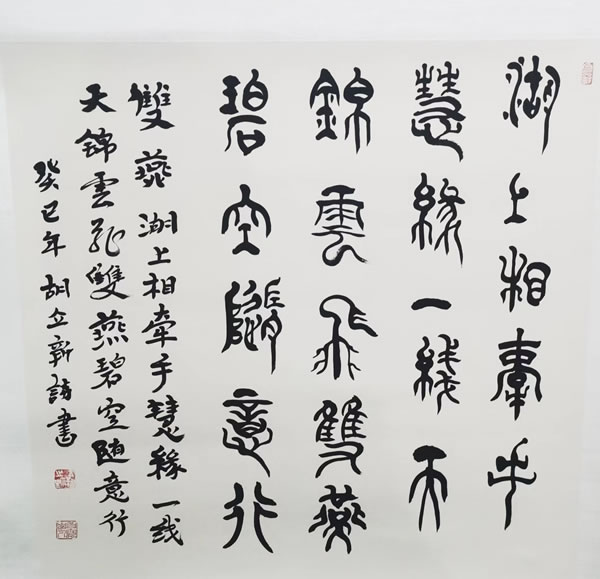 湖上相牽手
慧緣一綫天
錦雲飛雙燕
碧空隨意行
雙燕 湖上相牽手慧緣一綫
天錦雲飛雙燕碧空随意行
癸巳年胡立新詩書